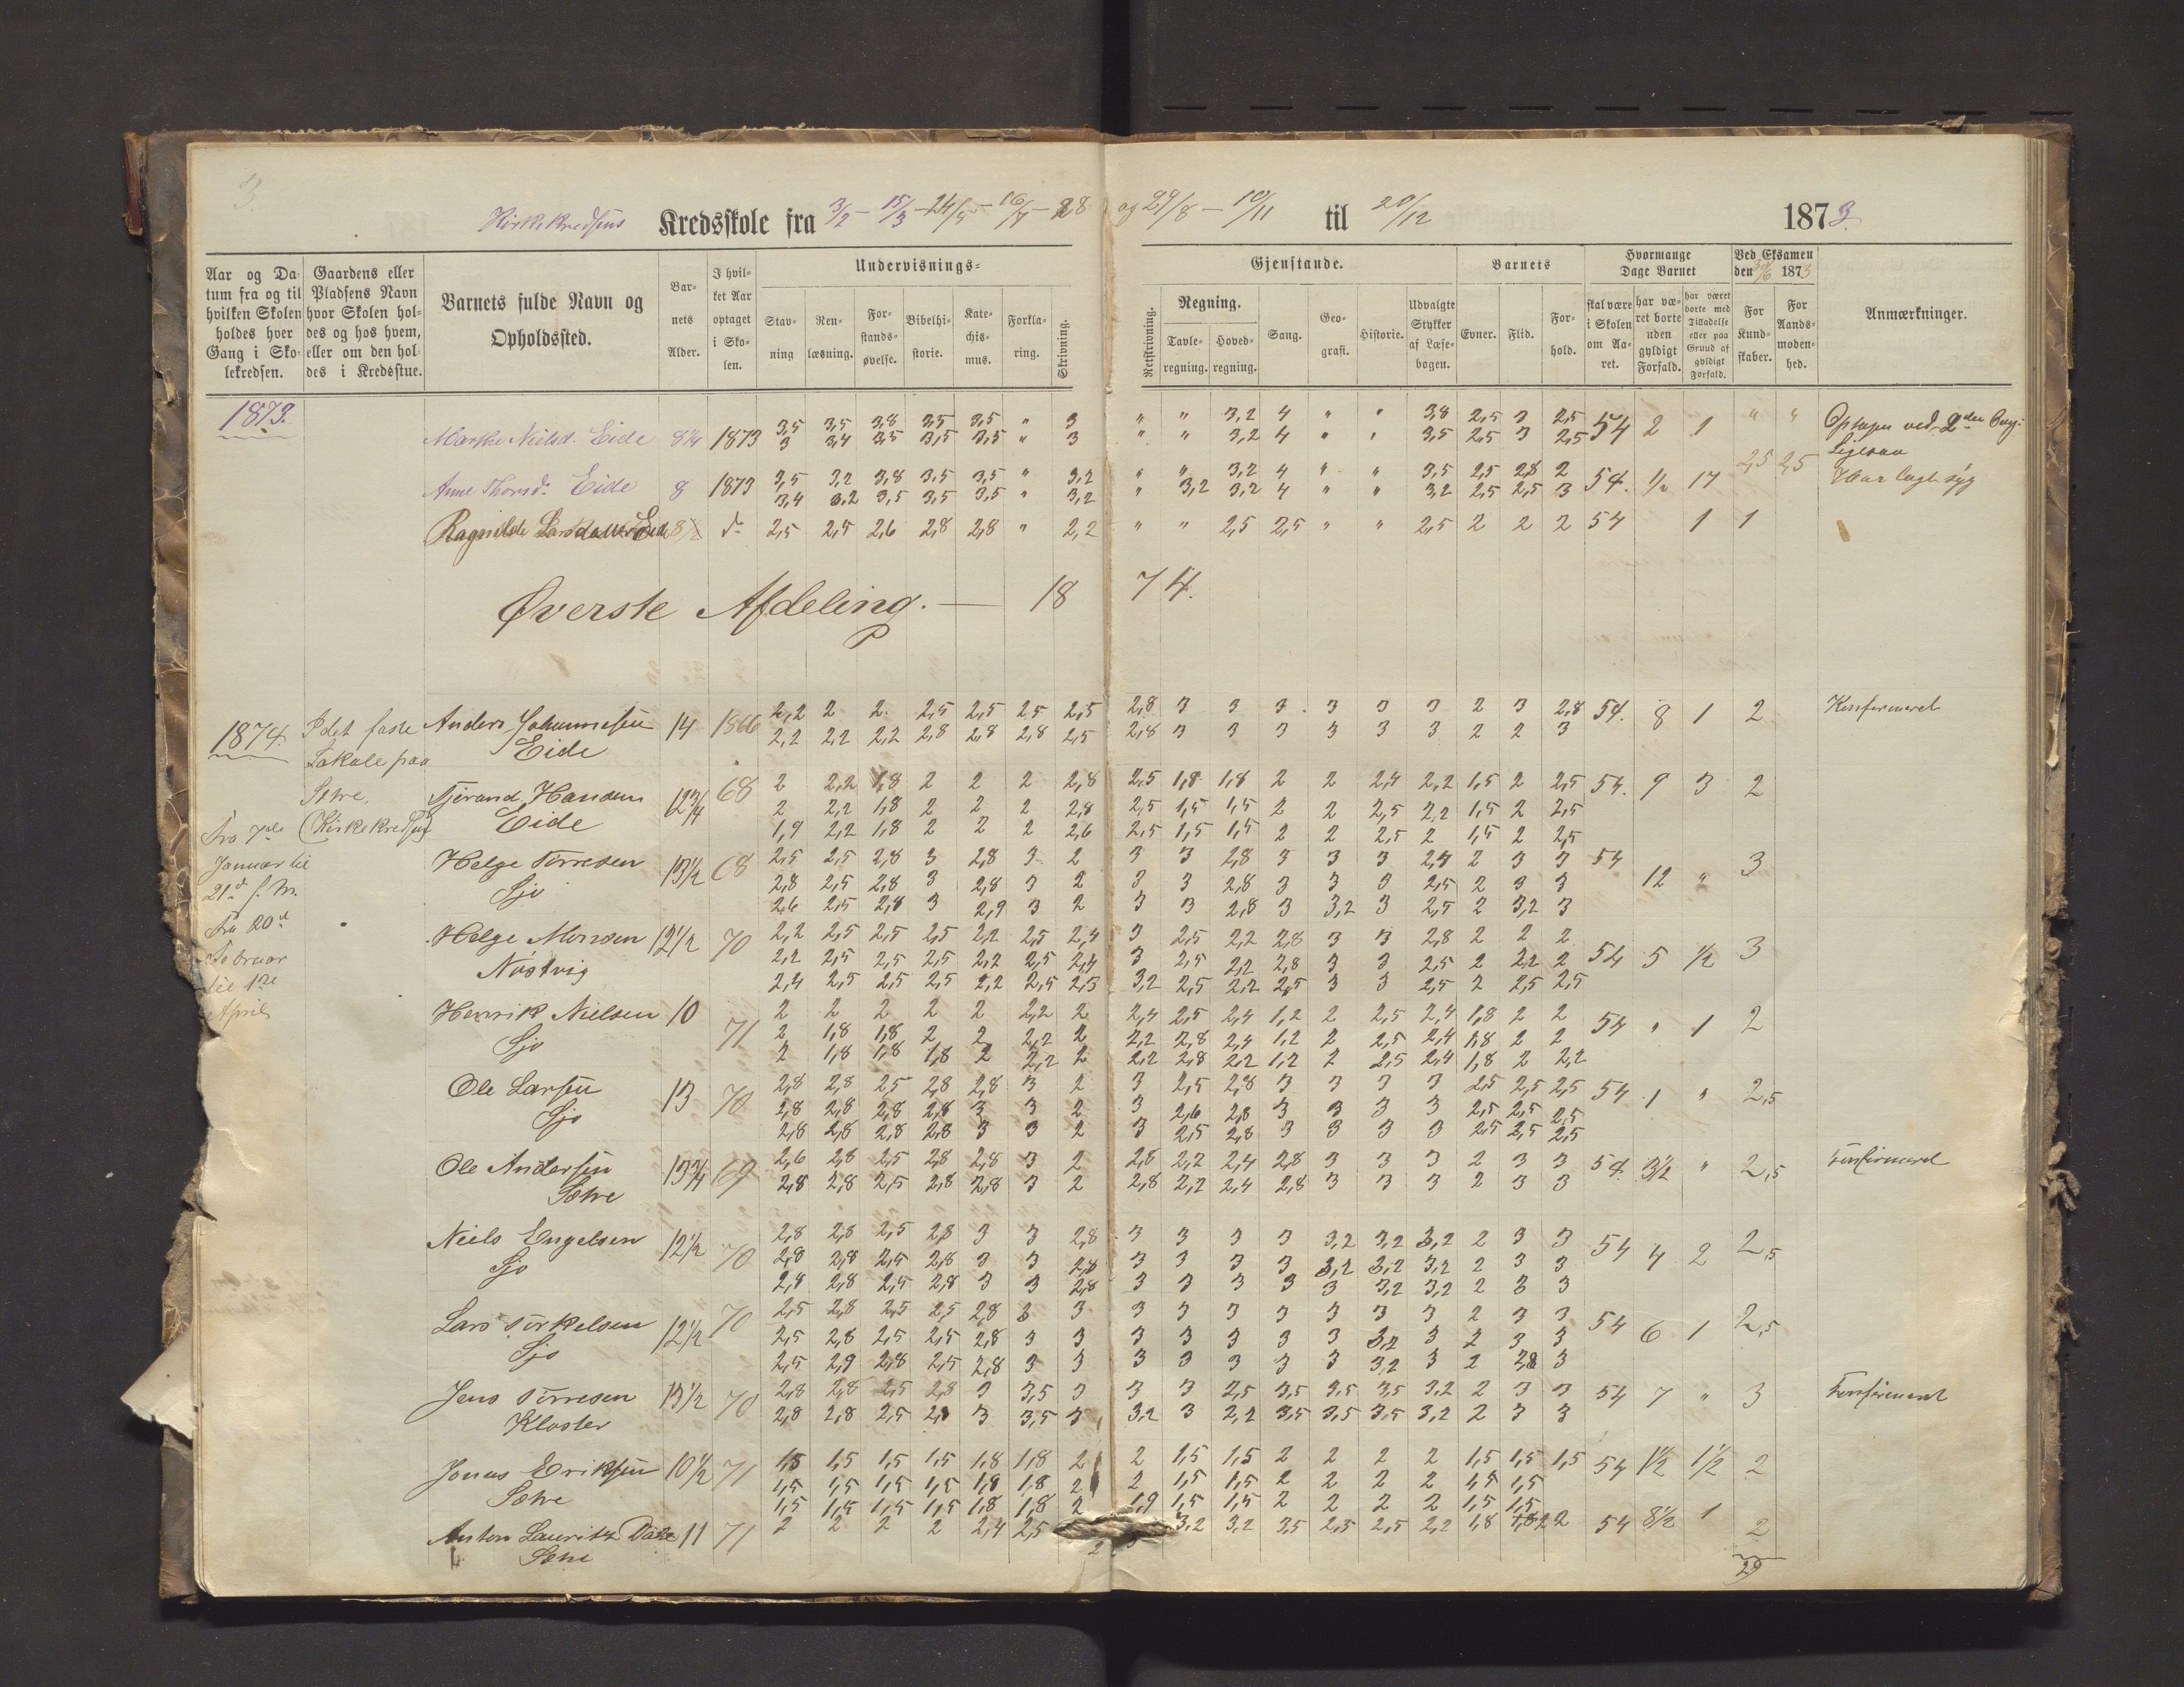 3.
Kirkekredsens Kredsskole fra 3/2 – 15/3 – 24/5 – 16/7 – 28 og 29/8 – 10/11 til 20/12 1873.
Aar og Datum fra og til hvilken Skolen holdes hver Gang i Skolekredsen.
Gaardens eller Pladsens Navn hvor Skolen holdes og hos hvem, eller om den holdes i Kredsstue.
Barnets fulde Navn og Opholdssted.
Barnets Alder.
I hvilket Aar optaget i Skolen.
Undervisnings-
Gjenstande.
Stavning
Renlæsning.
Forstandsøvelse.
Bibelhistorie.
Katechismus.
Forklaring.
Skrivning.
Retskrivning.
Regning.
Tavleregning.
Hovedregning.
Sang.
Geografi.
Historie.
Udvalgte Stykker af Læsebogen.
Barnets
Evner.
Flid.
Forhold.
Hvormange Dage Barnet
skal være i Skolen om Aaret.
har været borte uden gyldigt Forfald.
har været borte med Tilladelse eller paa Grund af gyldigt Forfald.
Ved Eksamen den 30/6 1873
For Kundskaber.
For Aandsmodenhed.
Anmærkninger.
1873.
Marthe Nielsd. Eide 8 1/4 1873 3,5 3,5 3,8 3,5 3,5 " 3 " " 3,2 4 " " 3,8 2,5 3 2,5 54 2 1 " "
3 3,4 3,5 3,5 3,5 " 3 " " 3,2 4 " " 3,5 2,5 3 2,5
Anne Thorsd. Eide 8 1873 3,5 3,2 3,8 3,5 3,5 " 3,2 " " 3,2 4 " " 3,5 2,5 2,8 2 54. 1/2 17 2,5 2,5 Har lagt syg
3,4 3,2 3,5 3,5 3,5 " 3,2 " 3,2 3,2 4 " " 3,2 2,5 2,5 3
Ragnilde Larsdatter Eide 8 1/2 do 2,5 2,5 2,6 2,8 2,8 " 2,2 " " 2,5 2,5 " " 2,5 2 2 2 54 1 1
Øverste Afdeling. — 18 74.
1874. I det faste Lokale paa
Anders Johannesen 14 1866 2,2 2 2 2,5 2,5 2,5 2,5 2,8 3 3 3 3 3 3 2 3 2,8 54. 8 1 2 Konfirmeret
Eide 2,2 2,2 2,2 2,8 2,8 2,8 2,5 2,8 3 3 3 3 3 3 2 2 3
(Kirkekredsen
Fra 7de
Januar til
21de f. M.
Fra 20de
Februar
til 1ste
April
Hansen 12 3/4 68 2 2,2 1,8 2 2 2 2,8 2,5 1,8 1,8 2 2 2,4 2,2 1,5 2 2,5 54. 9 3 2
Eide 2 2,2 1,8 2 2 2 2,8 2,5 1,5 1,5 2 2 2,5 2,2 1,5 2 2,5
1,9 2,2 1,8 2 2 2 2,6 2,5 1,5 1,5 2 2 2,5 2 1,5 2 2,5
Helge Torresen 13 1/2 68 2,5 2,5 2,8 3 2,8 3 2 3 3 2,8 3 3 3 2,4 2 3 3 54 12 " 3
Sjo 2,8 2,5 2,8 3 2,8 3 2 3 3 2,8 3 3 3 2,5 2 3 3
2,6 2,5 2,8 3 2,9 3 2 3 3 2,8 3 3,2 3 2,5 2 3,2 3
Helge Monsen 12 1/2 70 2,2 2,5 2,5 2,5 2,2 2,5 2,4 3 2,5 2,2 2,8 3 3 2,8 2 2 2 54 5 1/2 3
Nøstvig 2,2 2,5 2,5 2,5 2,2 2,5 2,4 3 2,5 2,2 2,8 3 3 2,5 2 2,2 2
2,4 2,5 2,5 2,5 2,2 2,5 2,5 3,2 2,5 2,2 2,5 3 3 2,5 2 2,5 2,5
Henrik Nielsen 10 71 2 2 2 2 2 2,2 2 2,4 2,5 2,4 1,2 2 2,5 2,4 1,8 2 2 54 " 1 2
Sjo 2 1,8 1,8 2 2 2,2 2 2,2 2,8 2,4 1,2 2 2,5 2,4 1,8 2 2
2 1,8 1,8 1,8 2 2,2 2 2,2 2,8 2,2 1,2 2 2,5 2,4 1,8 2 2,2
Ole Larsen 13 70 2,8 2,8 2,5 2,8 2,8 3 2 3 2,5 2,8 3 3 3 3 2,5 2,5 2,5 54 1 " 2,5
Sjo 2,8 2,8 2,8 2,8 3 3 2 3 2,6 2,8 3 3 3 3 2,5 2,5 2,5
2,8 2,8 2,8 2,8 3 3 2 3 2,5 2,8 3 3 3 3 2,5 2,5 2,5
Ole Andersen 13 3/4 69 2,6 2,8 2,5 2,8 2,8 3 2 2,8 2,2 2,4 2,8 3 3 3 2 3 3 54. 3 1/2 " 2,5 Konfirmeret
2,8 2,8 2,5 2,8 2,8 3 2 2,8 2,2 2,4 2,8 3 3 3 2 3 3
Niels Engelsen 12 1/2 70 2,8 2,8 2,5 2,8 3 3 2,8 3 3 3 3 3,2 3,2 3,2 2 3 3 54 4 2 2,5
Sjo 2,8 2,8 2,5 2,8 3 3 2,8 3 3 3 3 3,2 3,2 3,2 2 3 3
2,8 2,8 2,5 2,8 3 3 2,8 3 3 3 3 3 3,2 3,2 2 3 3
Lars Torkelsen 12 1/2 70 2,5 2,8 2,5 2,5 2,8 3 3 3 3 3 3 3 3 3 2 3 3 54 6 1 2,5
Sjo 2,5 2,8 2,5 2,5 2,8 3 3 3 3 3 3 3 3,2 3 2 3 3
2,5 2,9 2,8 2,5 2,8 3 3 3 3 3 3 3 3,2 3 2 2,8 3
Jens Torresen 13 1/2 70 2,8 2,8 2,5 2,8 3 3,5 3 3 3 2,5 3,5 3,5 3,5 3,2 2 3 3 54 7 " 3 Konfirmeret
Kloster 2,8 2,8 2,5 2,8 3 3,5 3 3,2 3 2,2 3,5 3,5 3,5 3,2 2 3 3
Jonas Eriksen 10 1/2 71 1,5 1,5 1,5 1,5 1,8 1,8 2 2 1,5 1,5 2 2 2 2 1,5 1,5 1,5 54 1 1/2 1 1/2 2
1,5 1,5 1,5 1,5 1,8 1,8 2 2 1,5 1,5 2 2 2 2 1,5 1,5
1,5 1,5 1,5 1,5 1,8 1,8 2 1,9 1,5 1,5 2 2 2 2 1,5 1,5
Anton Lauritz 11 71 2 2 2 2 2,4 2,5 3,2 3,2 3,5 2,5 2,5 2,2 1,8 54 8 1/2 1 2
29